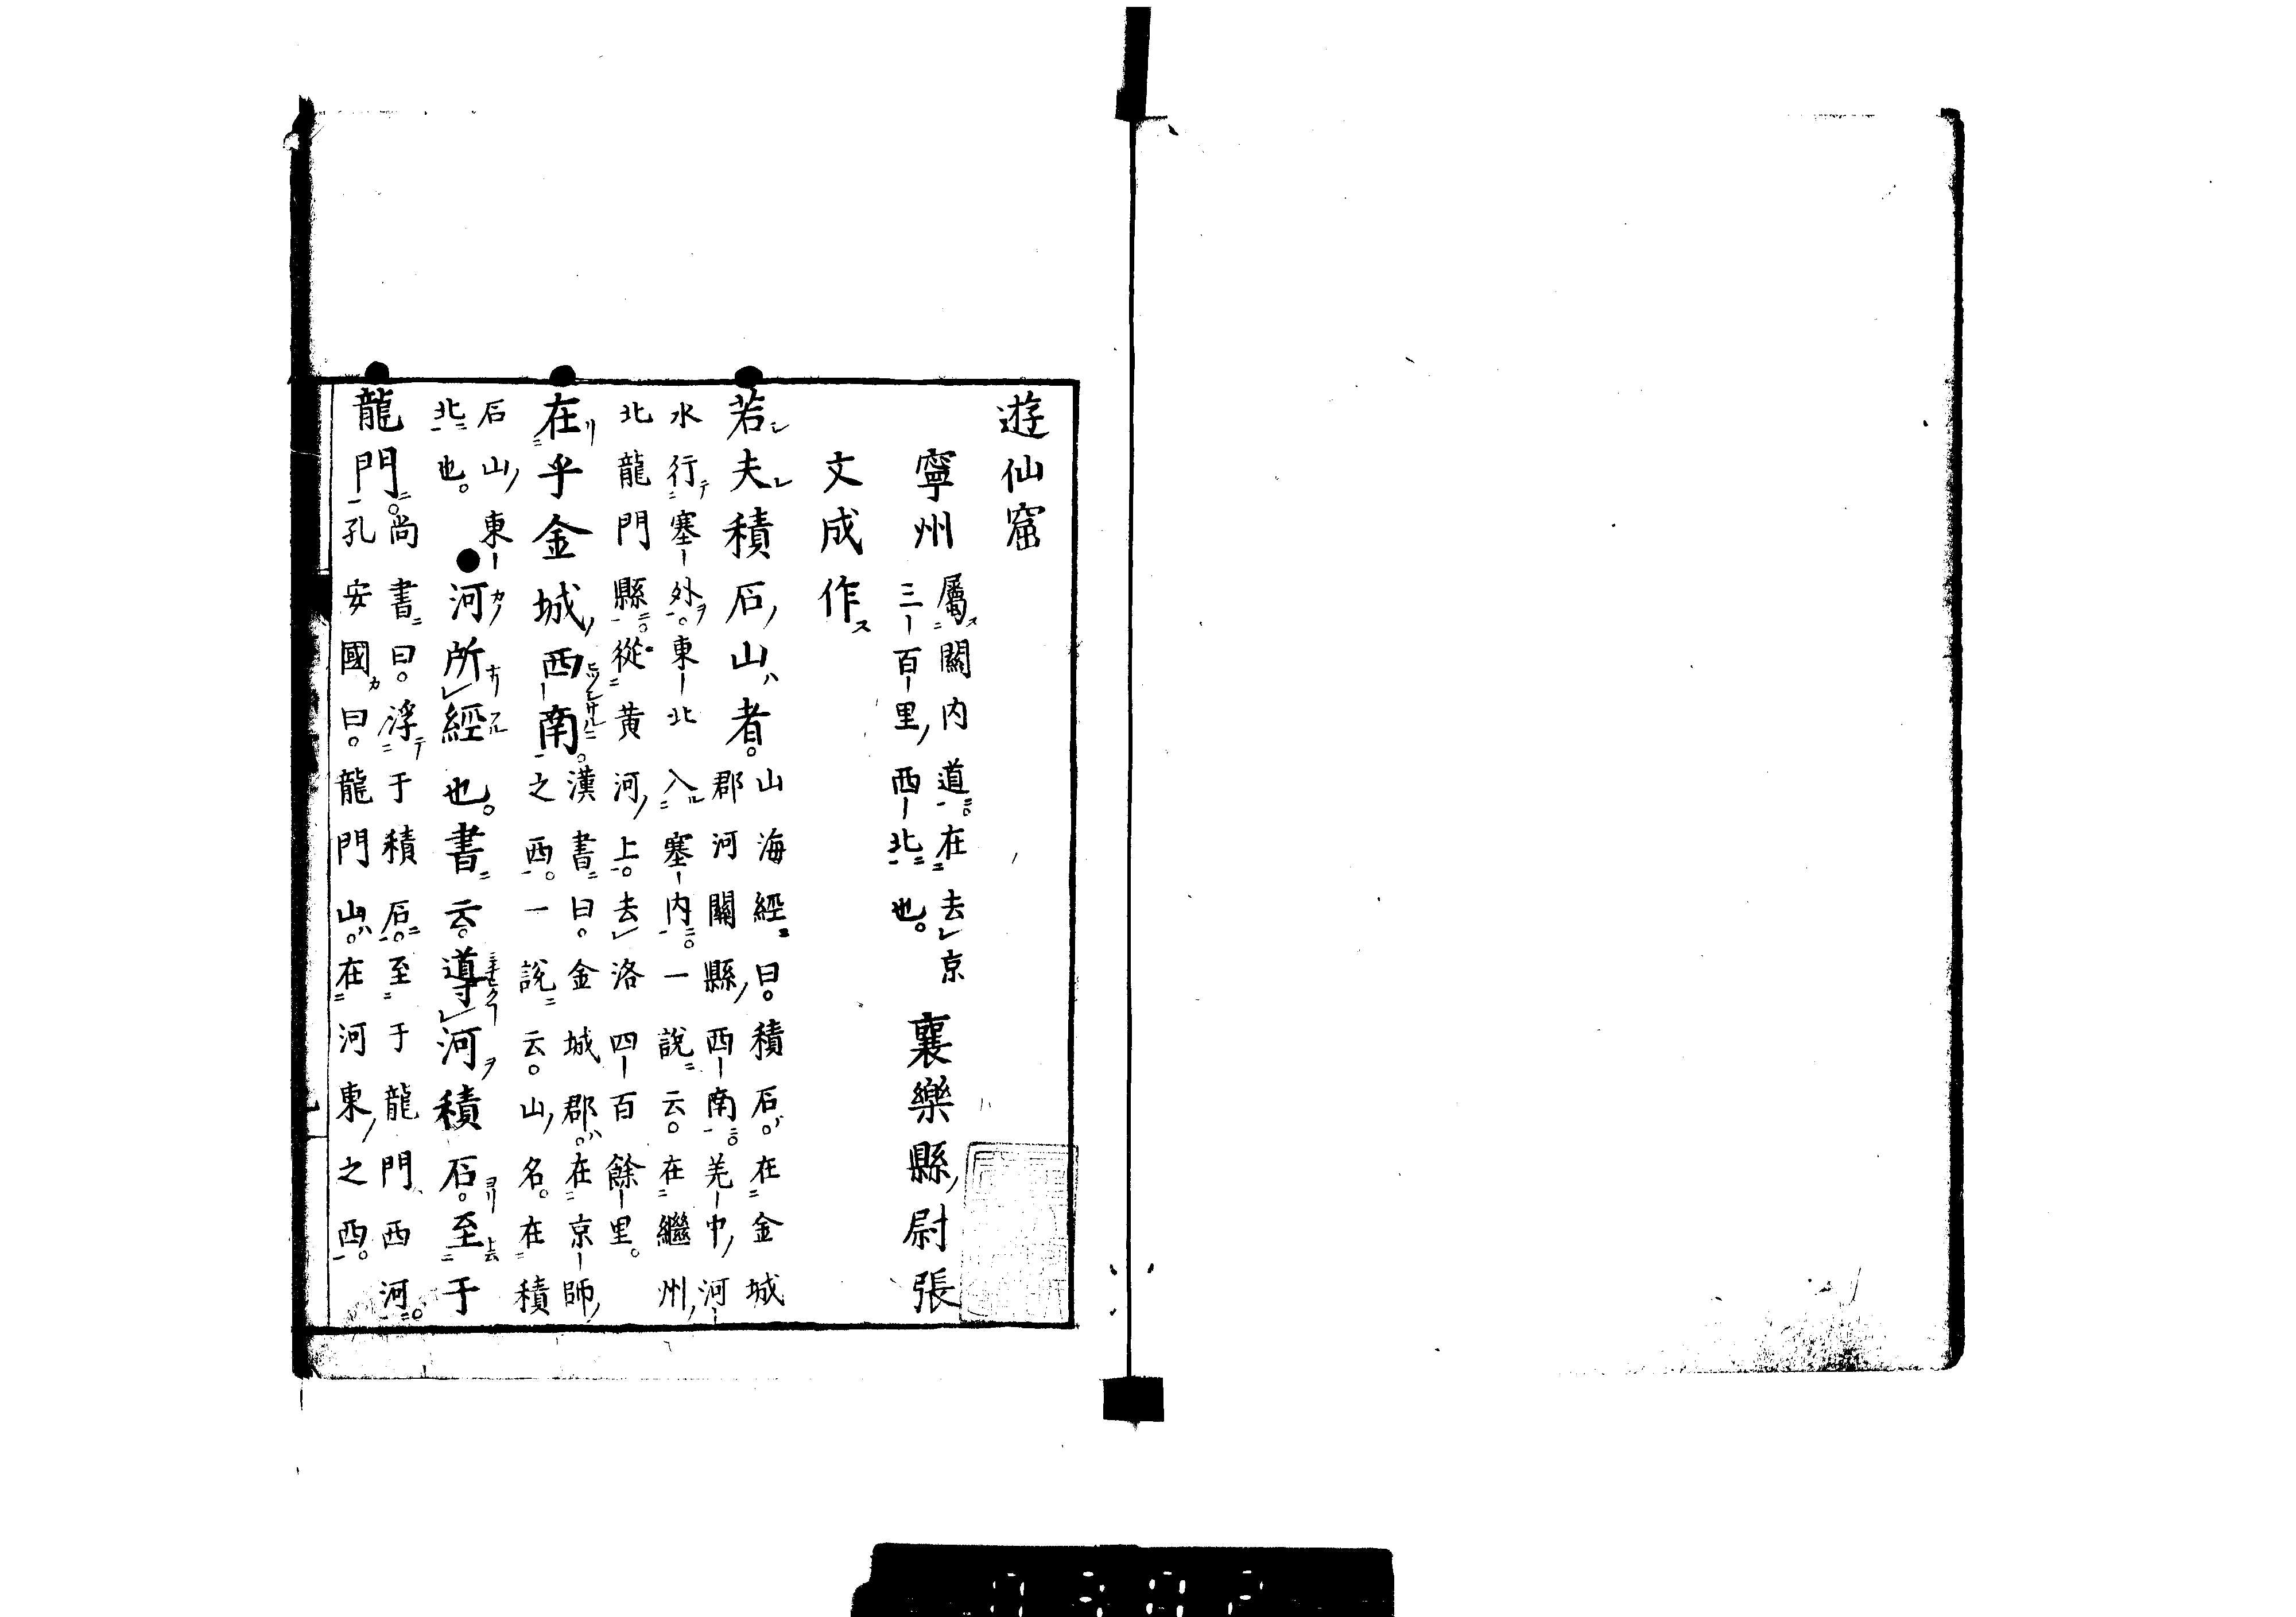 遊仙窟
寧州
屬關内道。在去京
三百里西北也。
襄樂縣尉張
文成作
若夫積石山者。
山海經曰。積石。在金城
郡河關縣西南。羌中河
水行塞外。東北入塞内。一說云。在繼州
北龍門縣。從黄河上。去洛四百餘里。
在乎金城西南。
漢書曰。金城郡。在京師
之西。一說云。山名。在積
石山東
北也。
河所經也。書云。導河積石。至于
龍門。
尚書曰。浮于積石。至于龍門西河。
孔安國曰。龍門山。在河東之西。